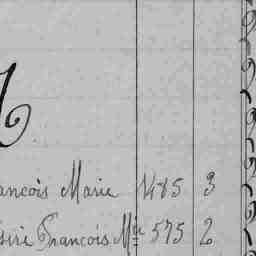 ancois Marie 1485 3
siré François Mie 575 2